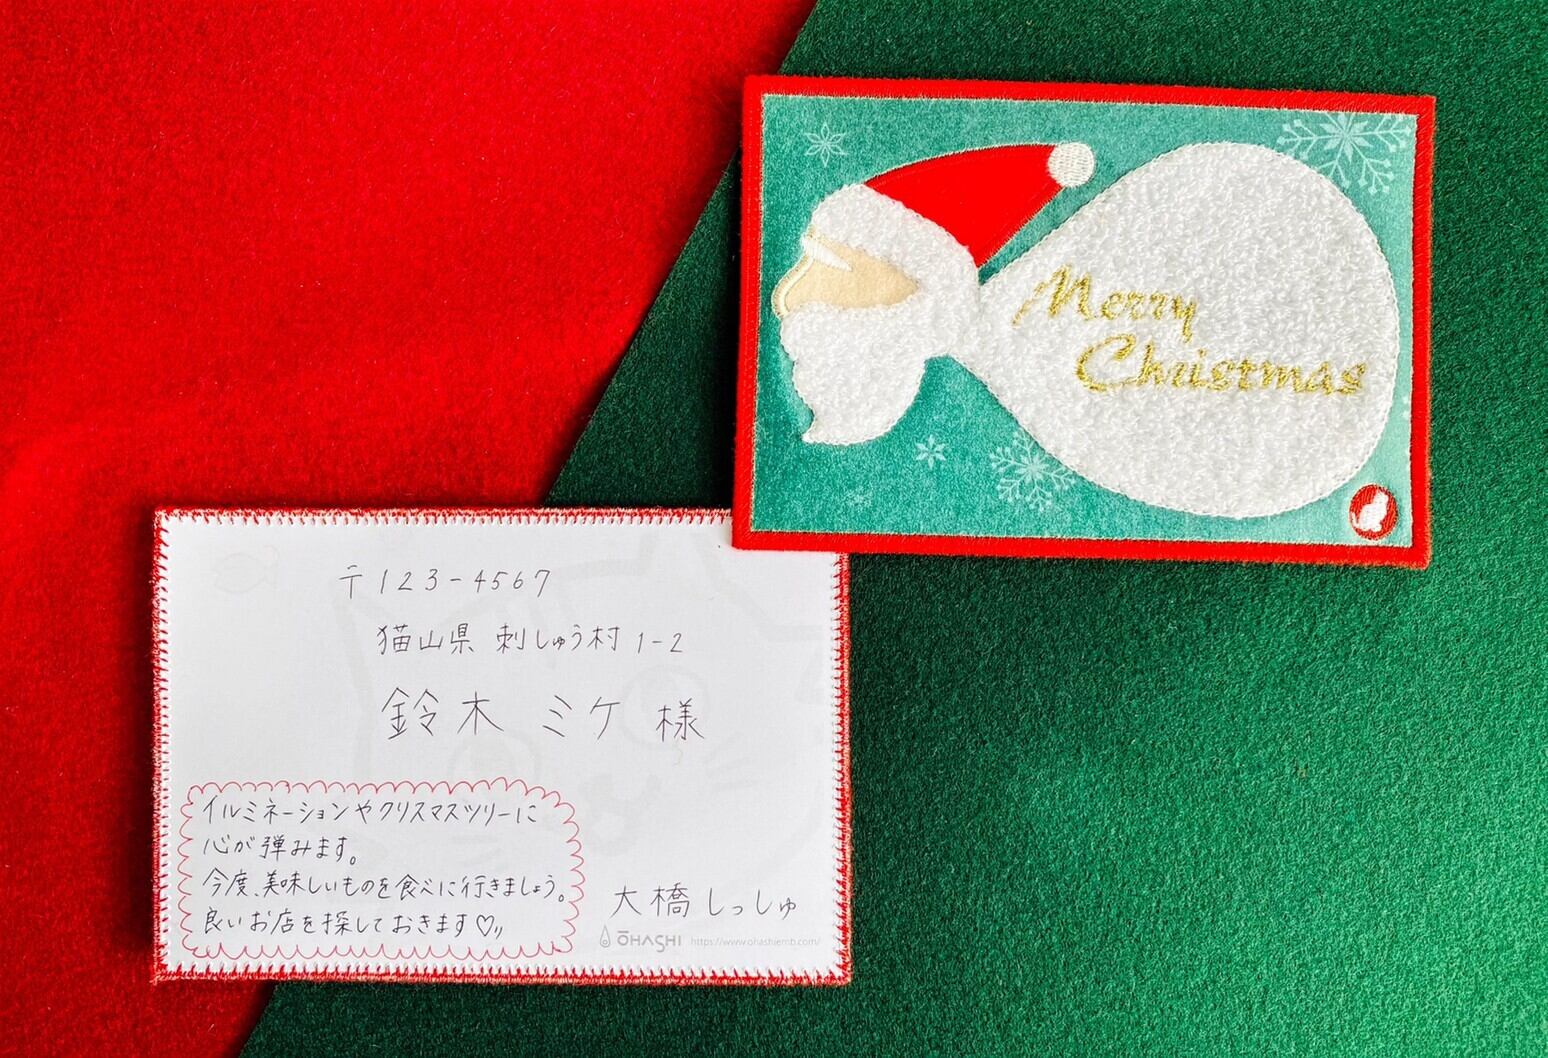 Merry
Christmas
〒123-4567
猫山県 刺しゅう村1-2
鈴木 ミケ 様
イルミネーションやクリスマスツリーに
心が弾みます。
今度、美味しいものを食べに行きましょう。
良いお店を探しておきます♡〃
大橋しっしゅ
ŌHASHI https://www.ohashiemb.com/